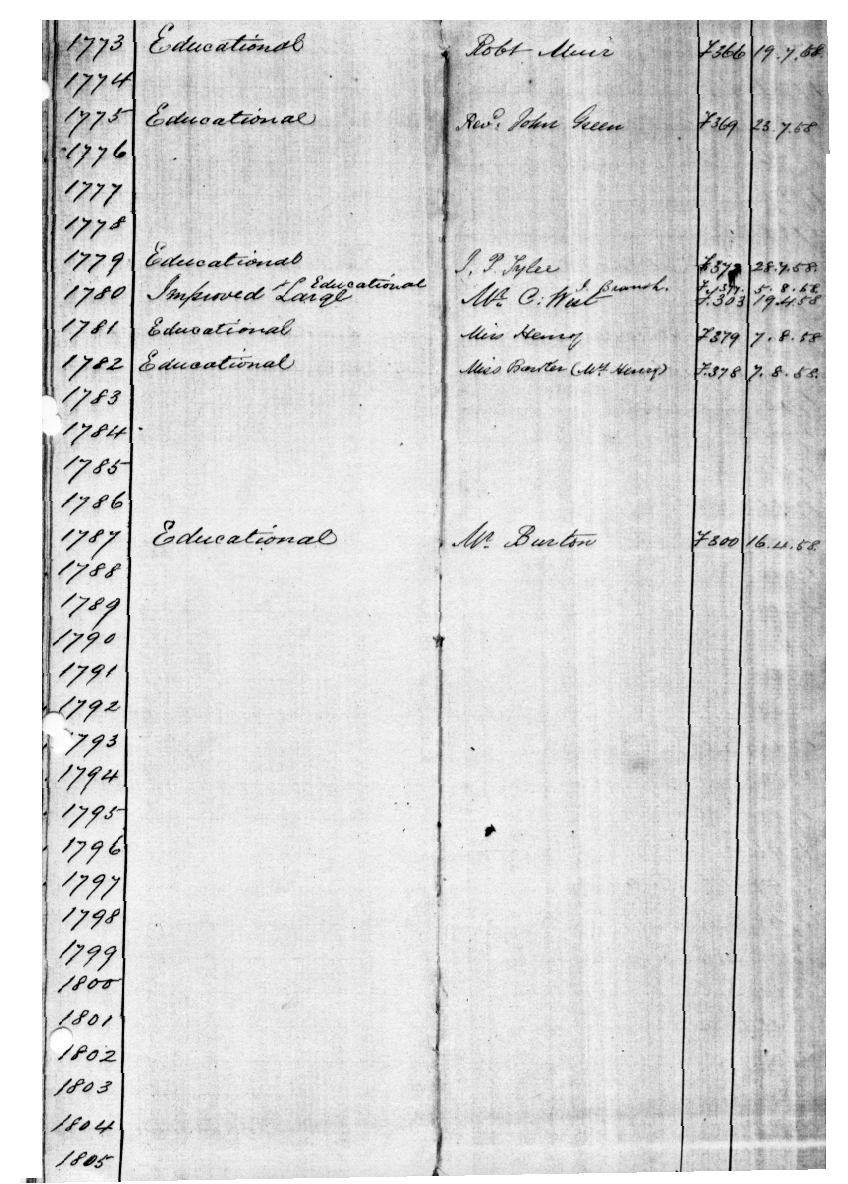 1773 Educational Robt Muir F366 19.7.58
1774
1775 Educational Revd: John Green F369 23.7.58
1776
1777
1778
1779 Educational J. P. Tyler 28.7.58.
Educational J. Branch. 5.8.58.
1780 Improved Large Mr. C: West F.303 19.4.58
1781 Educational Miss Henry F379 7.8.58
1782 Educational Miss Barker (Mrs Henry) F.378 7.8.58.
1783
1784
1785
1786
1787 Educational Mr. Burton F300 16.4.58.
1788
1789
1790
1791
1792
1793
1794
1795
1796
1797
1798
1799
1800
1801
1802
1803
1804
1805